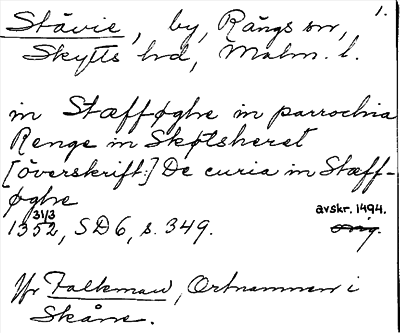 Stävie, by, Rängs sn, 1.
Skytts hd, Malm. l.
in Stæfføghe in parrochia
Renge in Skøtsheret
[överskrift:] De curia in Stæff-
øghe
31/3 avskr. 1494.
1352, SD6, s. 349. orig.
Jfr Falkman, Ortnamnen i
Skåne.